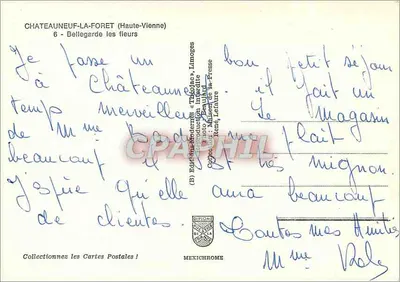 CHATEAUNEUF-LA-FORET (Haute-Vienne)
6 - Bellegarde les fleurs
Je passe un bon petit séjour
à Châteauneuf il fait un
temps merveilleux Le Magasin
de Mme me plait
beaucoup il est très mignon.
J'espère qu'elle aura beaucoup
de clientes. Toutes mes Amitiés
Mme
(S) Editions modernes "Théojac", Limoges
Reproduction interdite
Maison de la Presse
René Lefaure
CPAPHIL
Collectionnez les Cartes Postales !
MEXICHROME